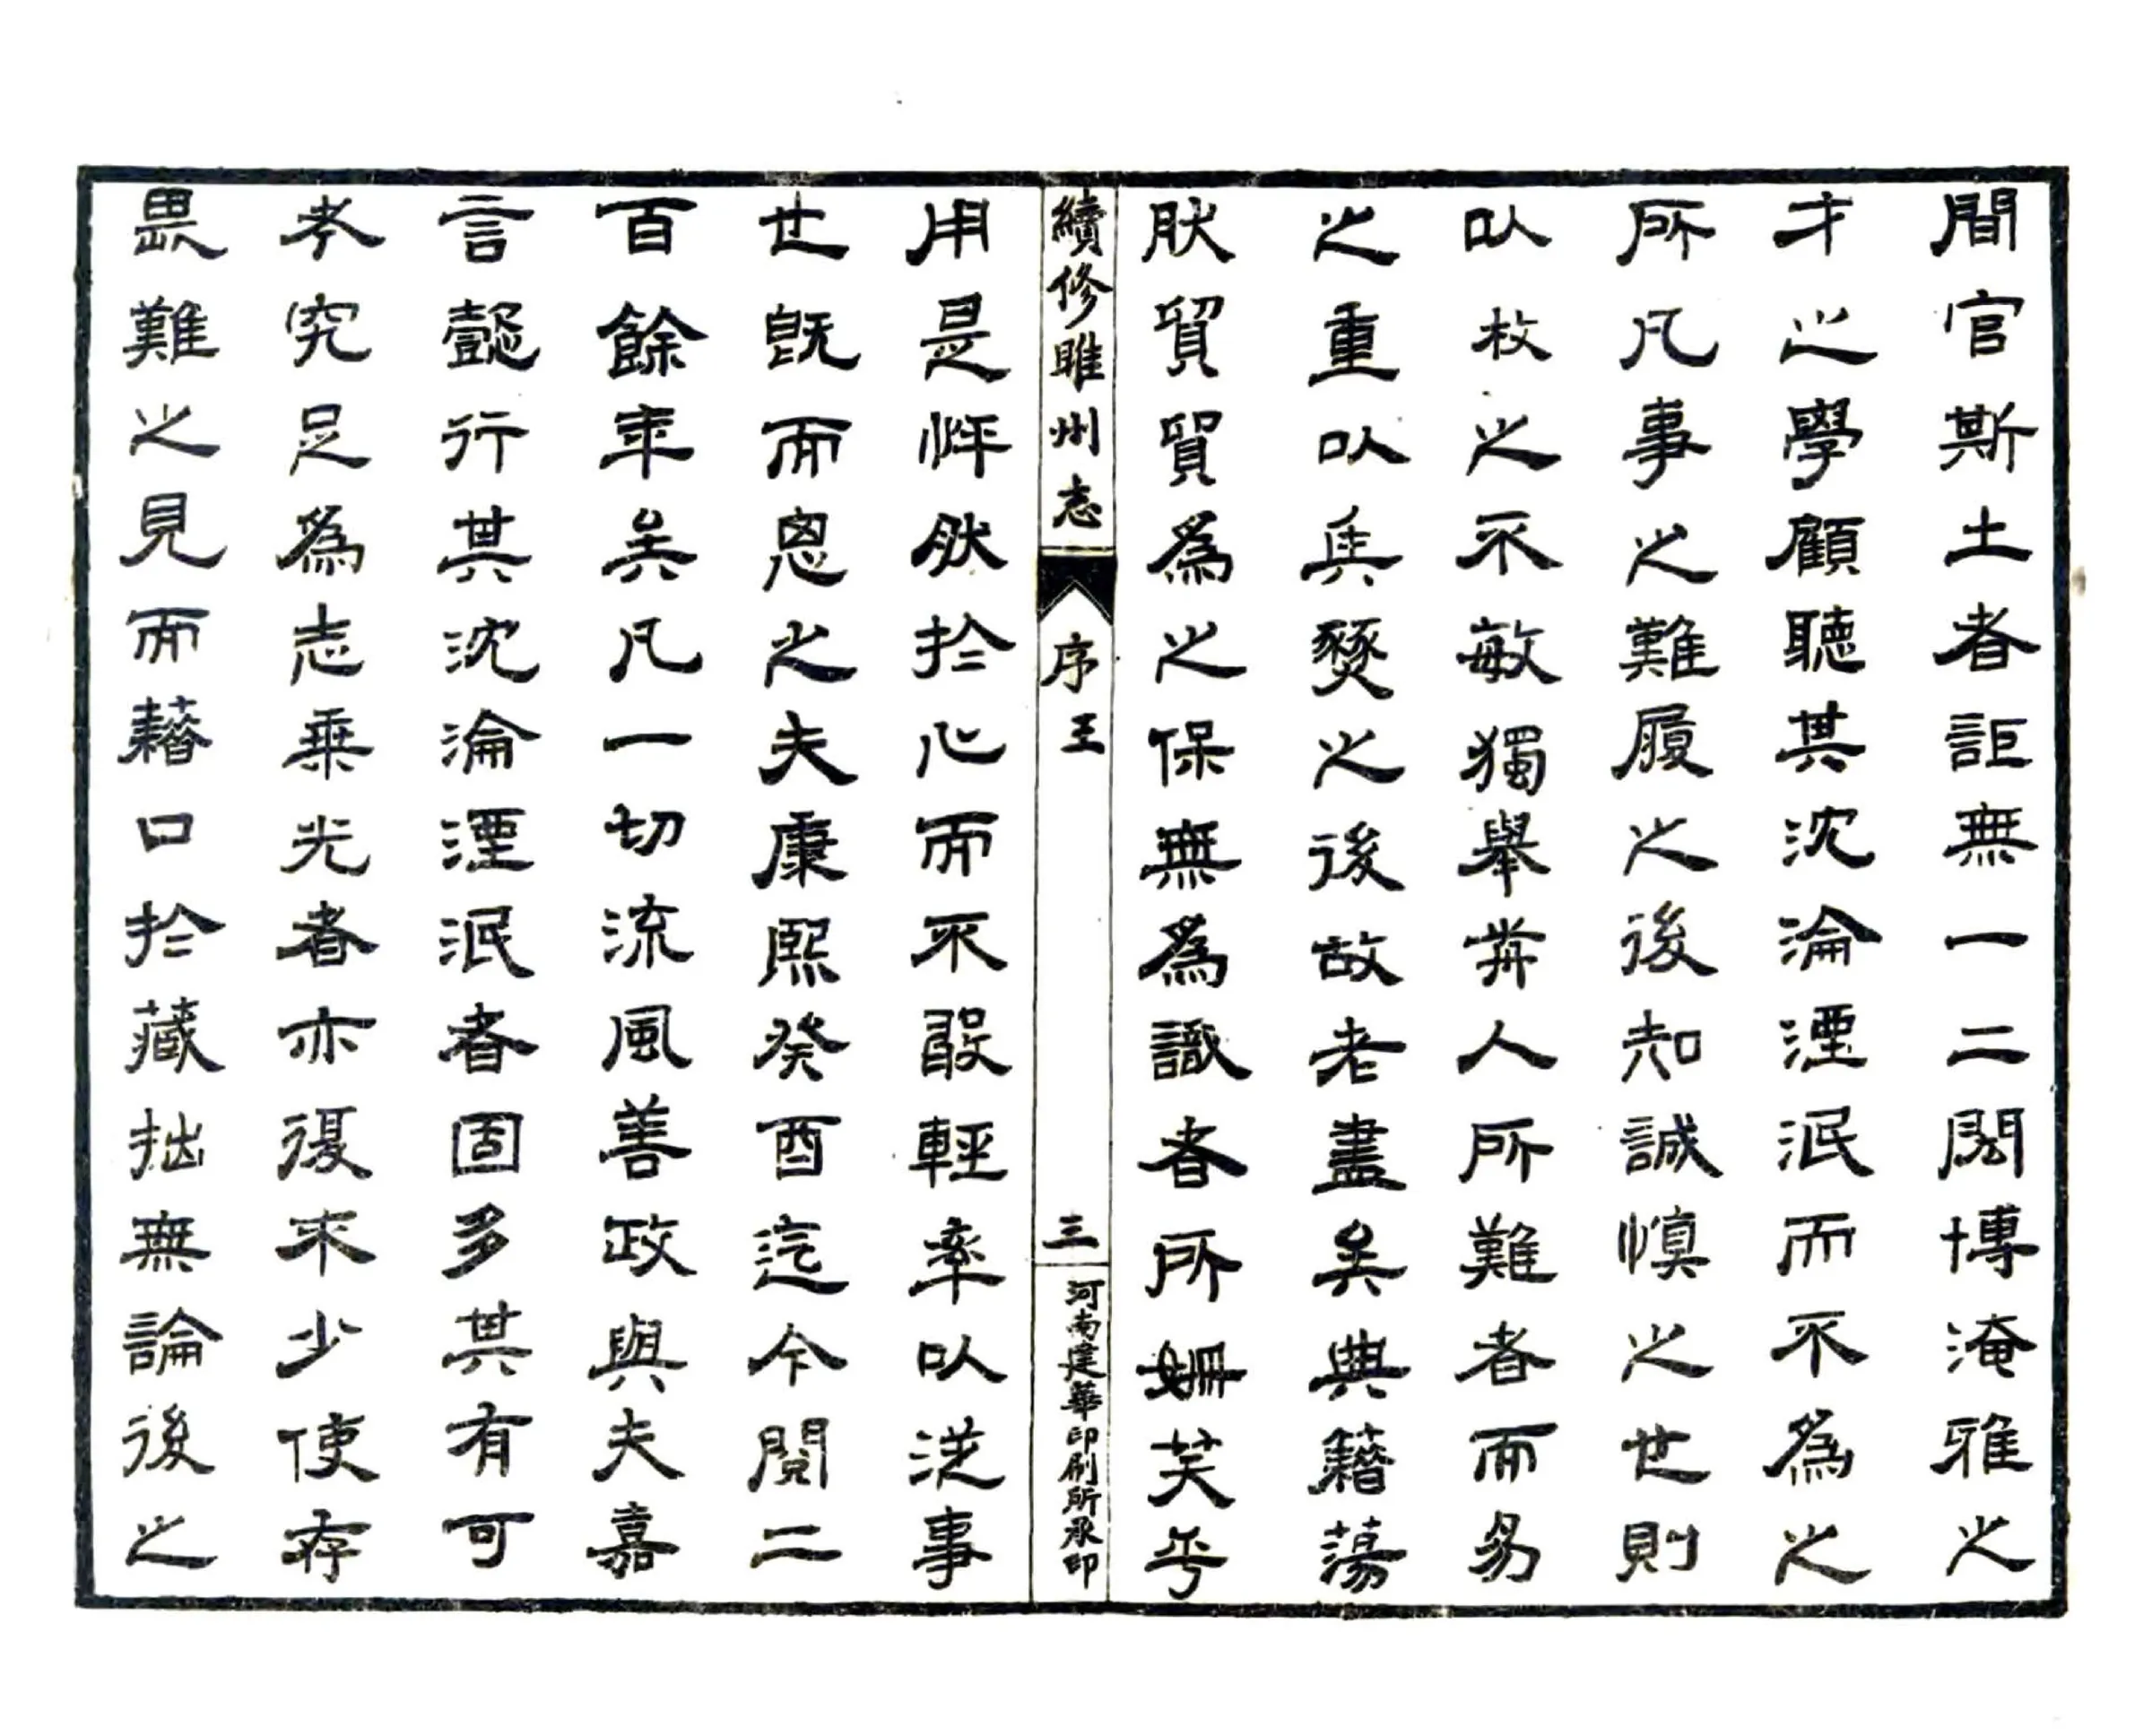 間官斯土者詎無一二閎博淹雅之
才之學顧聽其沈淪湮泯而不為之
所凡事之難履之後知誠慎之世則
以枚之不敏獨舉眾人所難者而易
之重以兵燹之後故老盡矣典籍蕩
然貿貿為之保無為識者所姍笑乎
續修睢州志
序王
三
河南建華印刷所承印
用是怦然於心而不敢輕率以從事
也既而思之夫康熙癸酉迄今閱二
百餘年矣凡一切流風善政與夫嘉
言懿行其沈淪湮泯者固多其有可
考究足為志乘光者亦復不少使存
畏難之見而藉口於藏拙無論後之